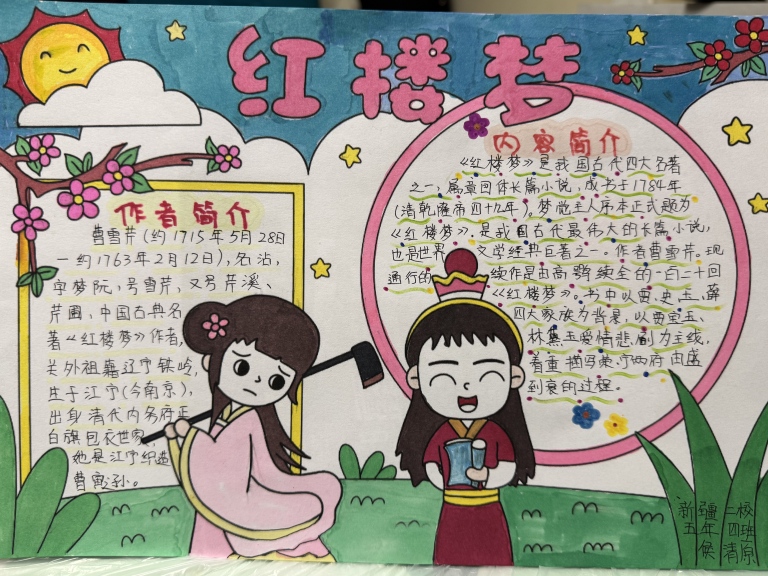 红楼梦
作者简介
曹雪芹(约1715年5月28日
一约1763年2月12日),名沾,
字梦阮,号雪芹,又号芹溪、
芹圃,中国古典名
著《红楼梦》作者,
关外祖籍辽宁铁岭,
生于江宁(今南京),
出身清代内务府正
白旗包衣世家,
她是江宁织造
曹寅孙。
内容简介
《红楼梦》是我国古代四大名著
之一,属章回体长篇小说,成书于1784年
(清乾隆帝四十九年)。梦觉主人序本正式题为
《红楼梦》.是我国古代最伟大的长篇小说,
也是世界文学经典巨著之一。作者曹雪芹。现
通行的续作是由高鹗续全的一百二十回
《红楼梦》。书中以贾、史、王、薛
四大家族为背景,以贾宝玉、
林黛玉爱情悲剧为主线,
着重描写荣、宁两府由盛
到衰的过程。
新疆二校
五年四班
侯清原